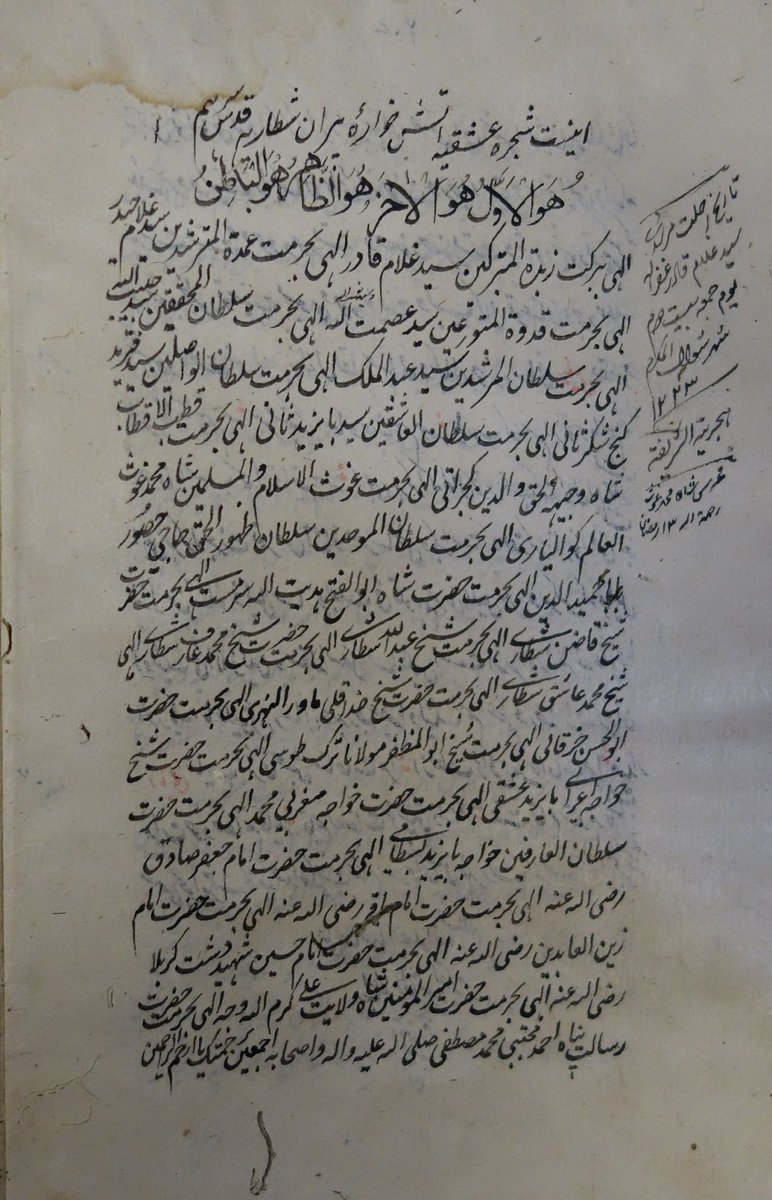 اینست شجره عشقیه آتش خوارهٔ پیران شطاریه قدس سرهم
هُوَ الاوّل هُوَ الاخر هُوَ الظّاهر هُوَ الباطنُ
الهی ببرکت زبدة المتبرکین سید غلام قادر الهی بحرمت عمدة المسترشدین سید غلام حیدر
الهی بحرمت قدوة المتورعین سید عصمت الله الهی بحرمت سلطان المحققین سید حبیب الله
الهی بحرمت سلطان المرشدین سید عبد الملک الهی بحرمت سلطان الواصلین سید فرید
گنج شکر ثانی الهی بحرمت سلطان العاشقین سید بایزید ثانی الهی بحرمت قطب الاقطاب
شاه وجیهه الحق والدین گجراتی الهی بحرمت غوث الاسلام والمسلمین شاه محمد غوث
العالم کوالیاری الهی بحرمت سلطان الموحدین سلطان ظهور الحق حاجی حضور
الهی بحرمت حضرت شاه ابو الفتح هدیت الله سرمست الهی بحرمت حضرت
شیخ قاضن شطاری الهی بحرمت شیخ عبد الله شطاری الهی بحرمت حضرت شیخ محمد عارف شطاری الهی
شیخ محمد عاشق شطاری الهی بحرمت حضرت شیخ خداقلی ماور النهری الهی بحرمت حضرت
ابو الحسن خرقانی الهی بحرمت شیخ ابو المظفر مولانا ترک طوسی الهی بحرمت حضرت شیخ
خواجه اعرابی بایزید عشقی الهی بحرمت حضرت خواجه مغربی محمد الهی بحرمت حضرت
سلطان العارفین خواجه بایزید بسطامی الهی بحرمت حضرت امام جعفر صادق
رضی الله عنه الهی بحرمت حضرت امام باقر رضی الله عنه الهی بحرمت حضرت امام
زین العابدین رضی الله عنه الهی بحرمت حضرت امام حسین شهید دشت کربلا
رضی الله عنه الهی بحرمت حضرت امیر المومنین شاه ولایت علی کرم الله وجه الهی بحرمت حضرت
رسالت پناه احمد مجتبی محمد مصطفی صلی الله علیه واله واصحابه اجمعین برحمتک یا ارحم الراحمین
تاریخ رحلت
سید غلام قادر
یوم جمعه بیست
شهر شوال المکرم
۱۲۲۳
هجریة الشریفة
عرس شاه محمد غوث
رحمة الله ۱۳ رمضان